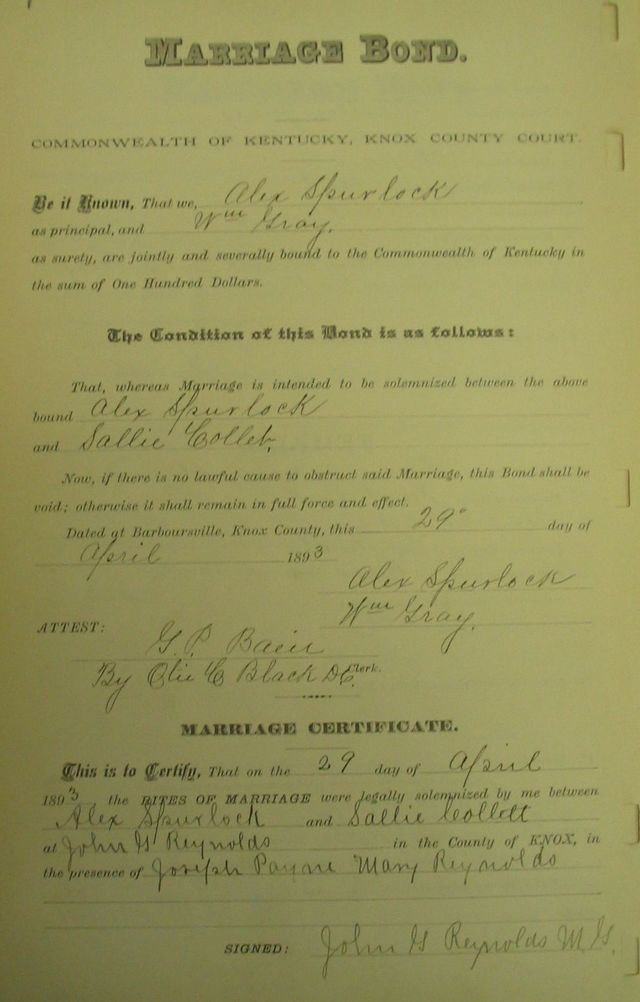 MARRIAGE BOND.
COMMONWEALTH OF KENTUCKY, KNOX COUNTY COURT.
Be it Known, That we, Alex Spurlock
as principal, and Wm Gray,
as surety, are jointly and severally bound to the Commonwealth of Kentucky in
the sum of One Hundred Dollars.
The Condition of this Bond is as follows:
That, whereas Marriage is intended to be solemnized between the above
bound Alex Spurlock
and Sallie Collet,
Now, if there is no lawful cause to obstruct said Marriage, this Bond shall be
void; otherwise it shall remain in full force and effect.
Dated at Barboursville, Knox County, this 29" day of
April 1893
Alex Spurlock
Wm Gray,
ATTEST:
G. P. Bain
Clerk.
By Olie C Black D.C.
MARRIAGE CERTIFICATE.
This is to Certify, That on the 29 day of April
1893, the RITES OF MARRIAGE were legally solemnized by me between
Alex Spurlock and Sallie Collett
at John G Reynolds in the County of KNOX, in
the presence of Joseph Payne Mary Reynolds
SIGNED: John G Reynolds M.G.